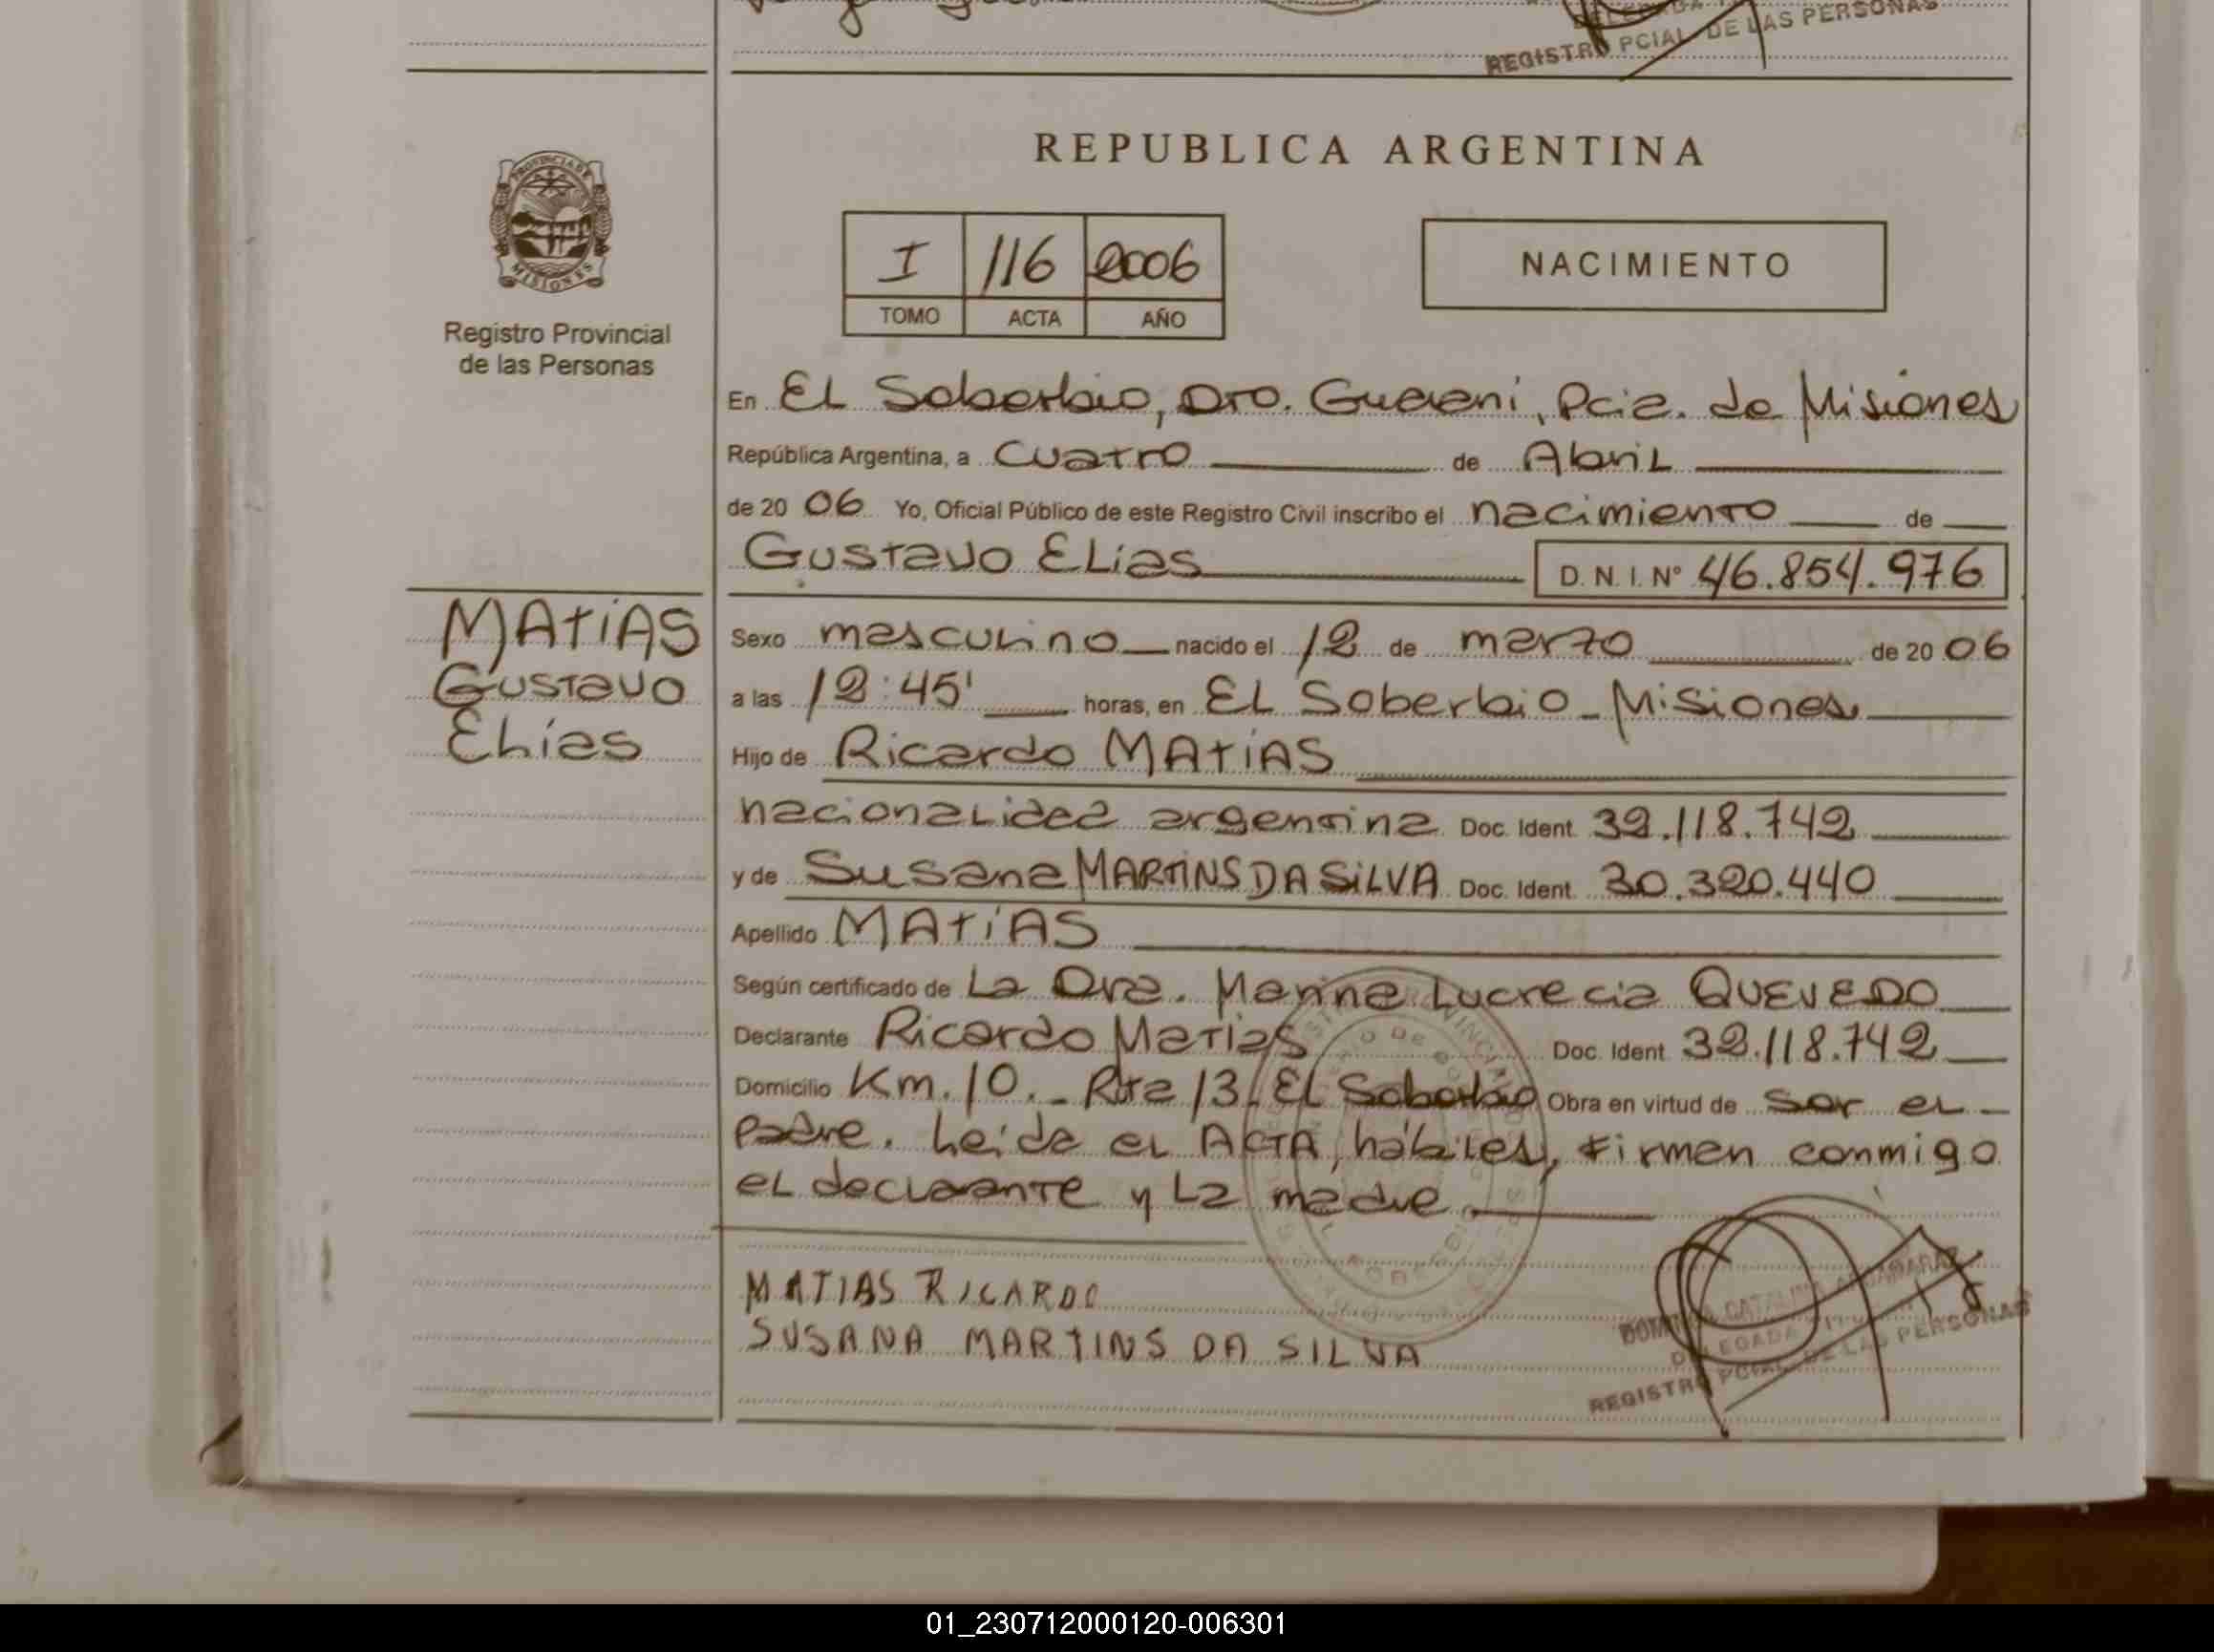 REGISTRO PCIAL. DE LAS PERSONAS
REPUBLICA ARGENTINA
PROVINCIA DE
MISIONES
I 116 2006
TOMO ACTA AÑO
NACIMIENTO
Registro Provincial
de las Personas
En El Soberbio, Dto. Guaraní, Pcia. de Misiones
República Argentina, a cuatro de Abril
de 20 06 Yo, Oficial Público de este Registro Civil inscribo el nacimiento de
Gustavo Elias D. N. I. N° 46.854.976
MATIAS
Gustavo
Elias
Sexo masculino nacido el 12 de marzo de 20 06
a las 12:45' horas, en El Soberbio - Misiones
Hijo de Ricardo MATIAS
nacionalidad argentina Doc. Ident. 32.118.742
y de Susana MARTINS DA SILVA Doc. Ident. 30.320.440
Apellido MATIAS
Según certificado de La Dra. Marina Lucrecia QUEVEDO
Declarante Ricardo Matias Doc. Ident. 32.118.742
Domicilio Km. 10.- Rta 13- El Soberbio Obra en virtud de ser el -
padre. Leída el ACTA, hábiles, firman conmigo
el declarante y la madre.
MATIAS RICARDO
SUSANA MARTINS DA SILVA
DELEGADA
REGISTRO PCIAL. DE LAS PERSONAS
01_230712000120-006301